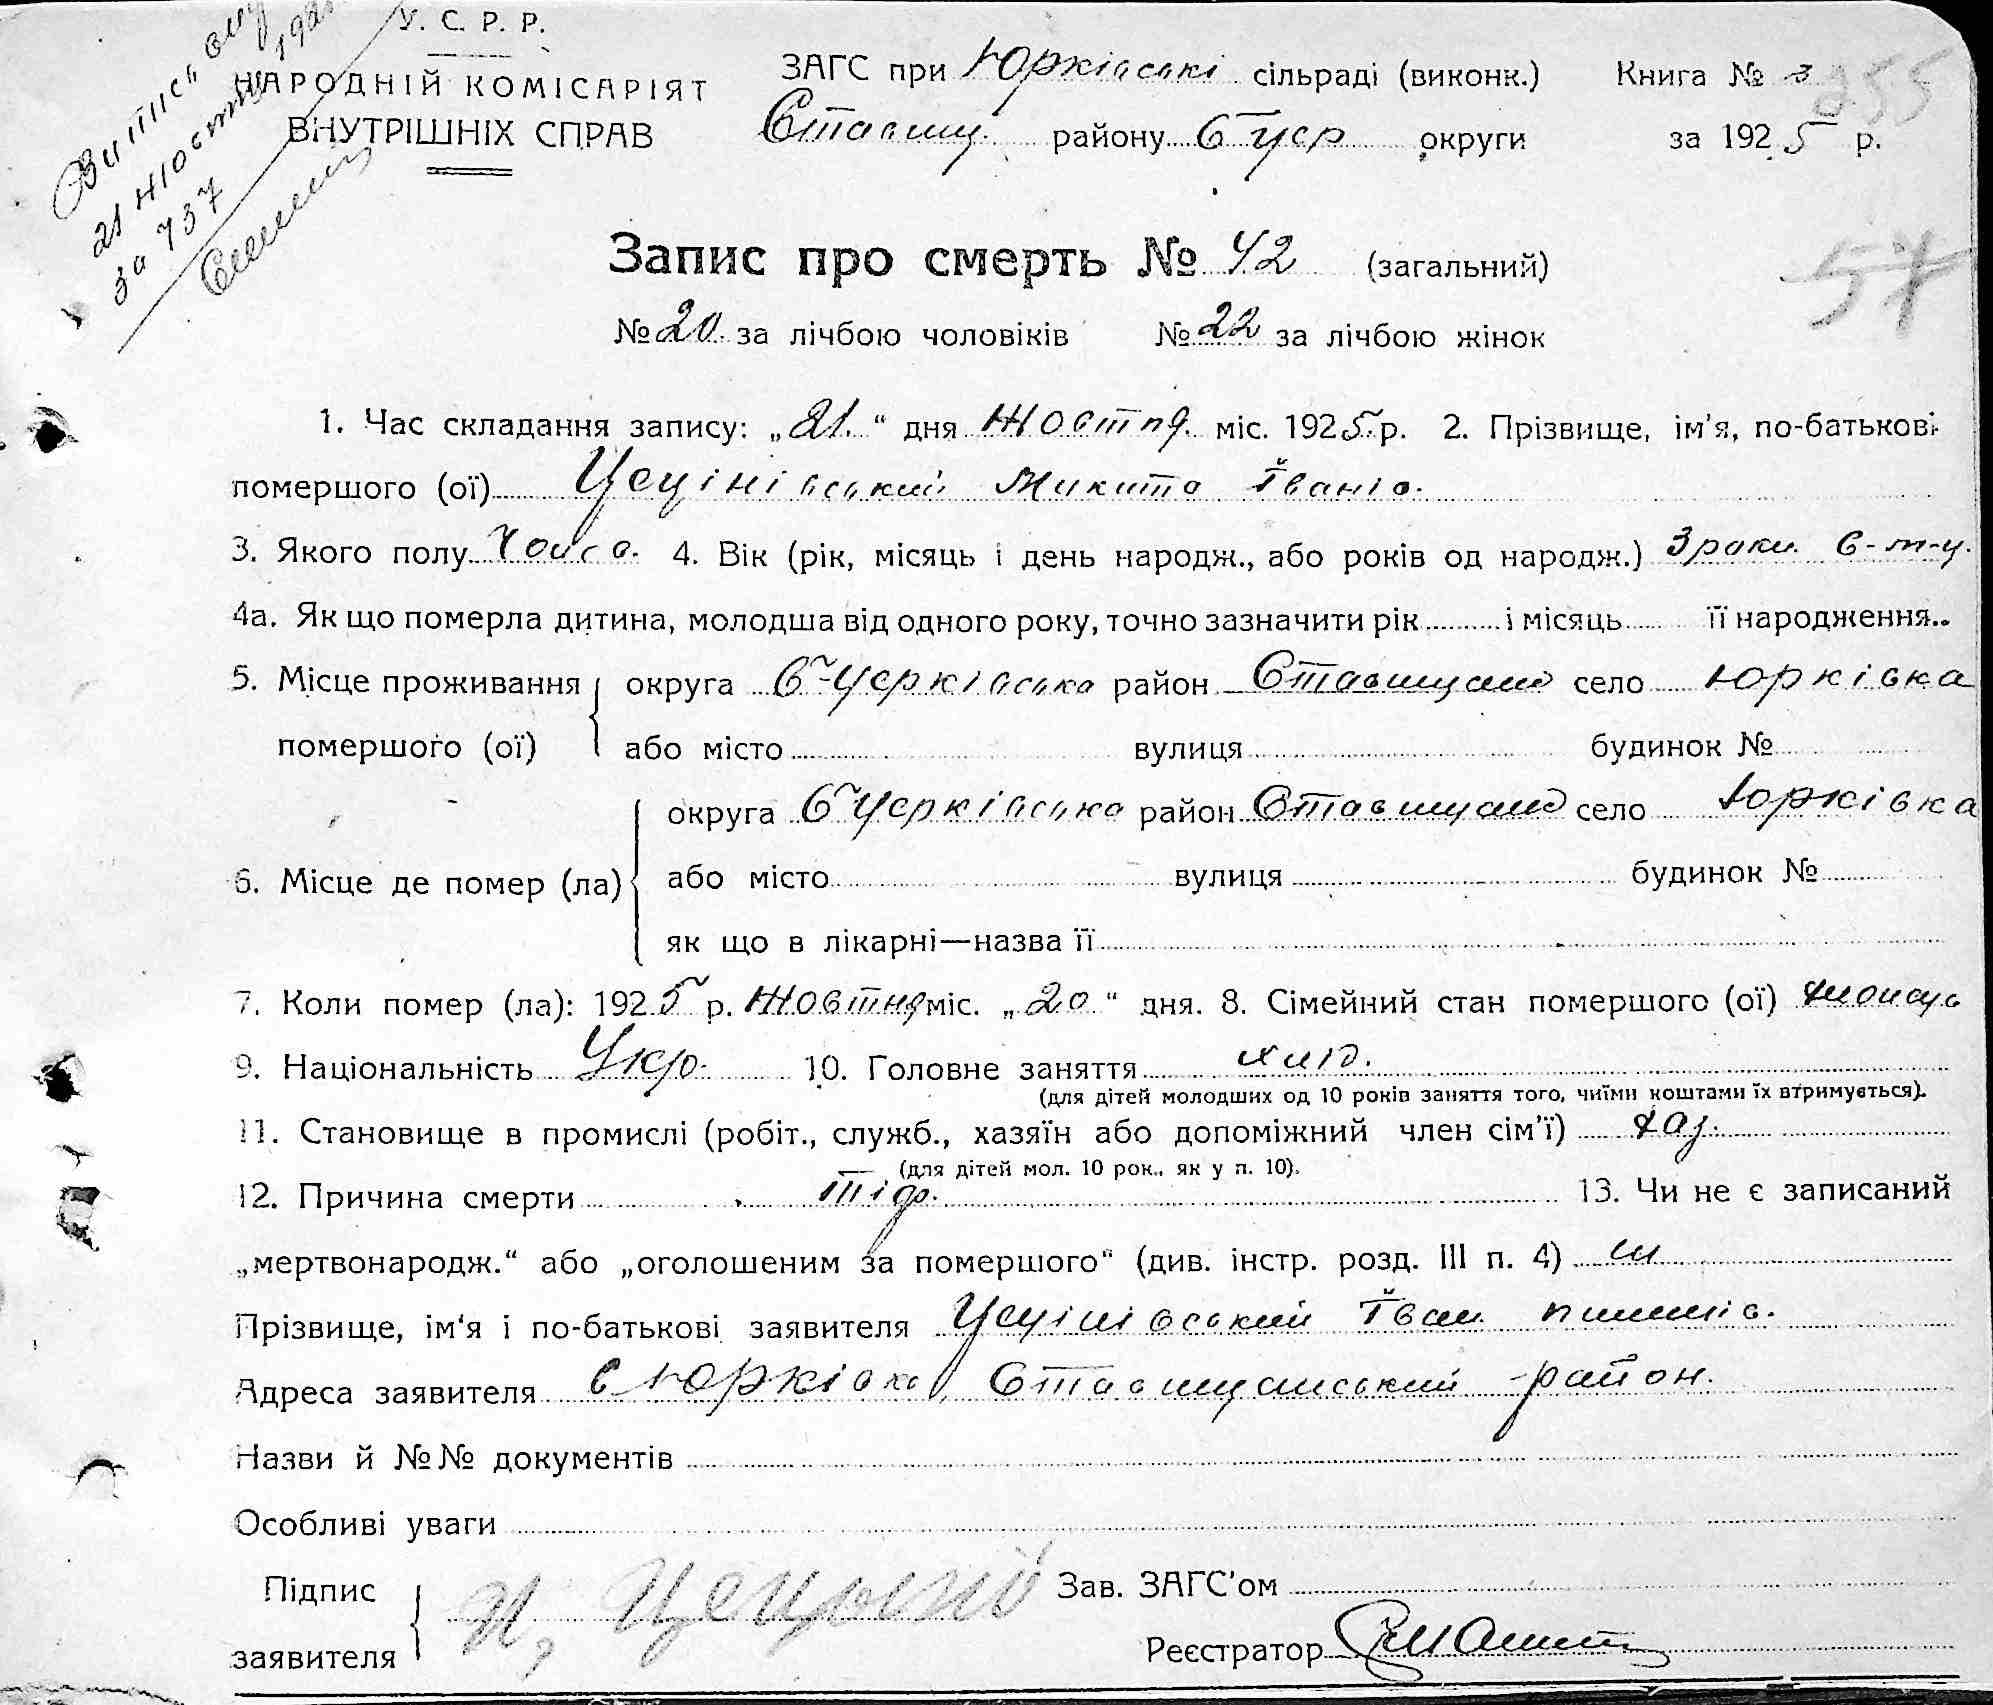 У. С. Р. Р.
НАРОДНІЙ КОМІСАРІЯТ
ВНУТРІШНІХ СПРАВ
Випис
21
за 737
ЗАГС при Юрківські сільраді (виконк.) Книга № 3
Ставищ. району Б Цер округи за 1925 р.
255
Запис про смерть № 42 (загальний)
57
№ 20 за лічбою чоловіків № 22 за лічбою жінок
1. Час складання запису: „21“ дня Жовтня міс. 1925 р. 2. Прізвище, ім'я, по-батькові
помершого (ої) Микита Іванів.
3. Якого полу Чолов. 4. Вік (рік, місяць і день народж., або років од народж.) 3 роки
4а. Як що померла дитина, молодша від одного року, точно зазначити рік і місяць її народження
5. Місце проживання помершого (ої) округа Б-Церківська район Ставищан село Юрківка
або місто вулиця будинок №
6. Місце де помер (ла) округа Б Церківська район Ставищан село Юрківка
або місто вулиця будинок №
як що в лікарні—назва її
7. Коли помер (ла): 1925 р. Жовтня міс. „20“ дня. 8. Сімейний стан помершого (ої)
9. Національність Укр. 10. Головне заняття хлід.
(для дітей молодших од 10 років заняття того, чиїми коштами їх втримується).
11. Становище в промислі (робіт., служб., хазяїн або допоміжний член сім'ї) хаз.
(для дітей мол. 10 рок., як у п. 10).
12. Причина смерти тіф. 13. Чи не є записаний
„мертвонародж.“ або „оголошеним за помершого“ (див. інстр. розд. III п. 4) ні
Прізвище, ім'я і по-батькові заявителя Іван
Адреса заявителя с Юрківка, Ставищанський район.
Назви й №№ документів
Особливі уваги
Підпис заявителя
Зав. ЗАГС'ом
Реєстратор